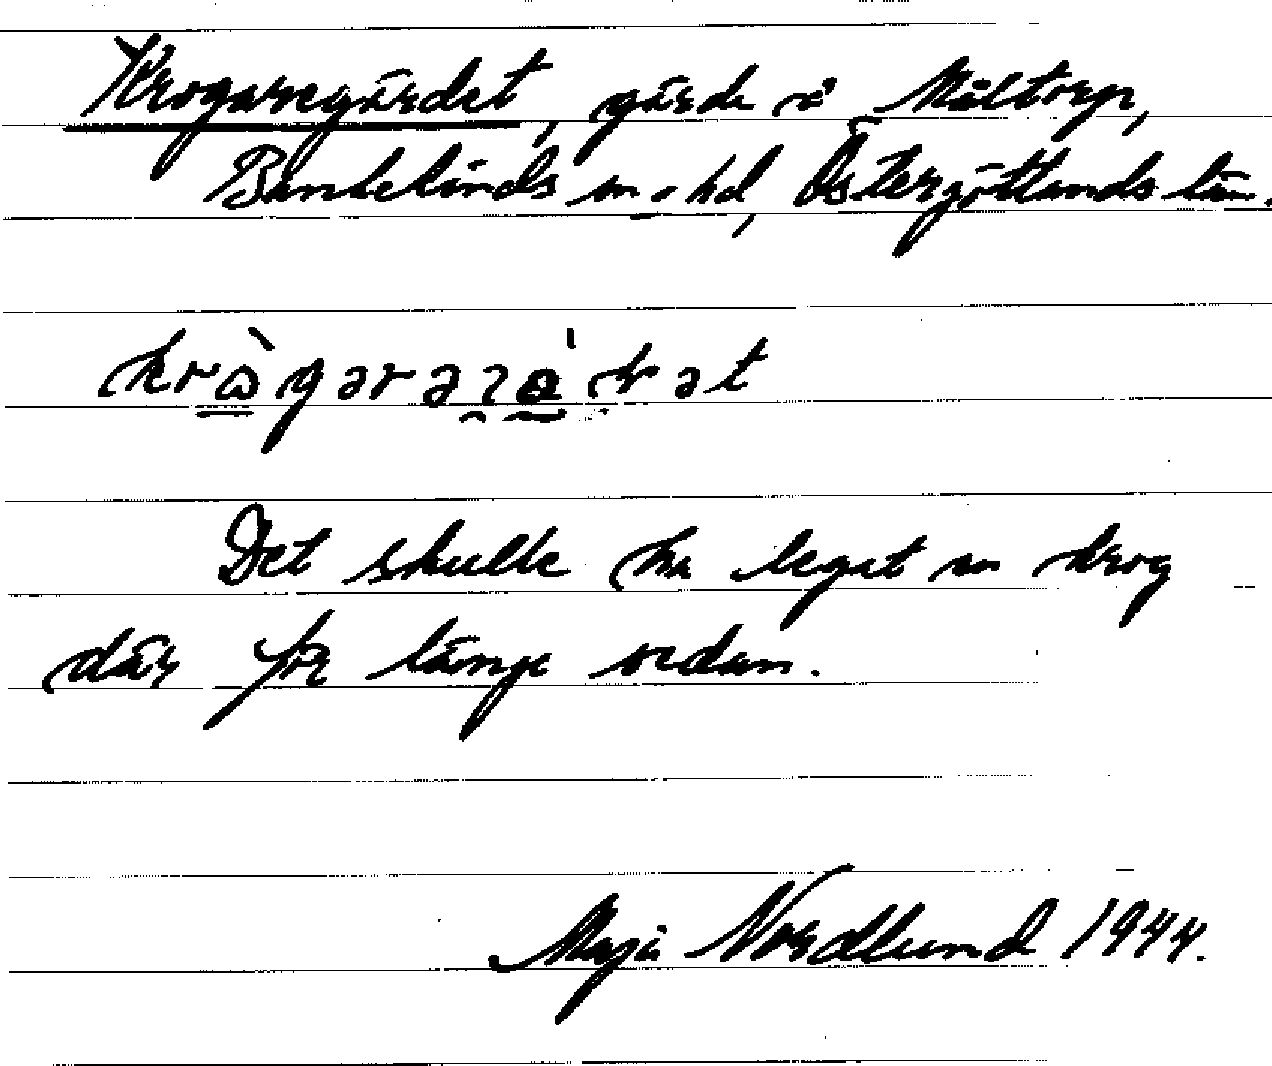 Krogaregärdet, gärde i Måltorp,
Bankekinds sn o hd, Östergötlands län.
Det skulle ha legat en krog
där för länge sedan.
Maja Nordlund 1944.